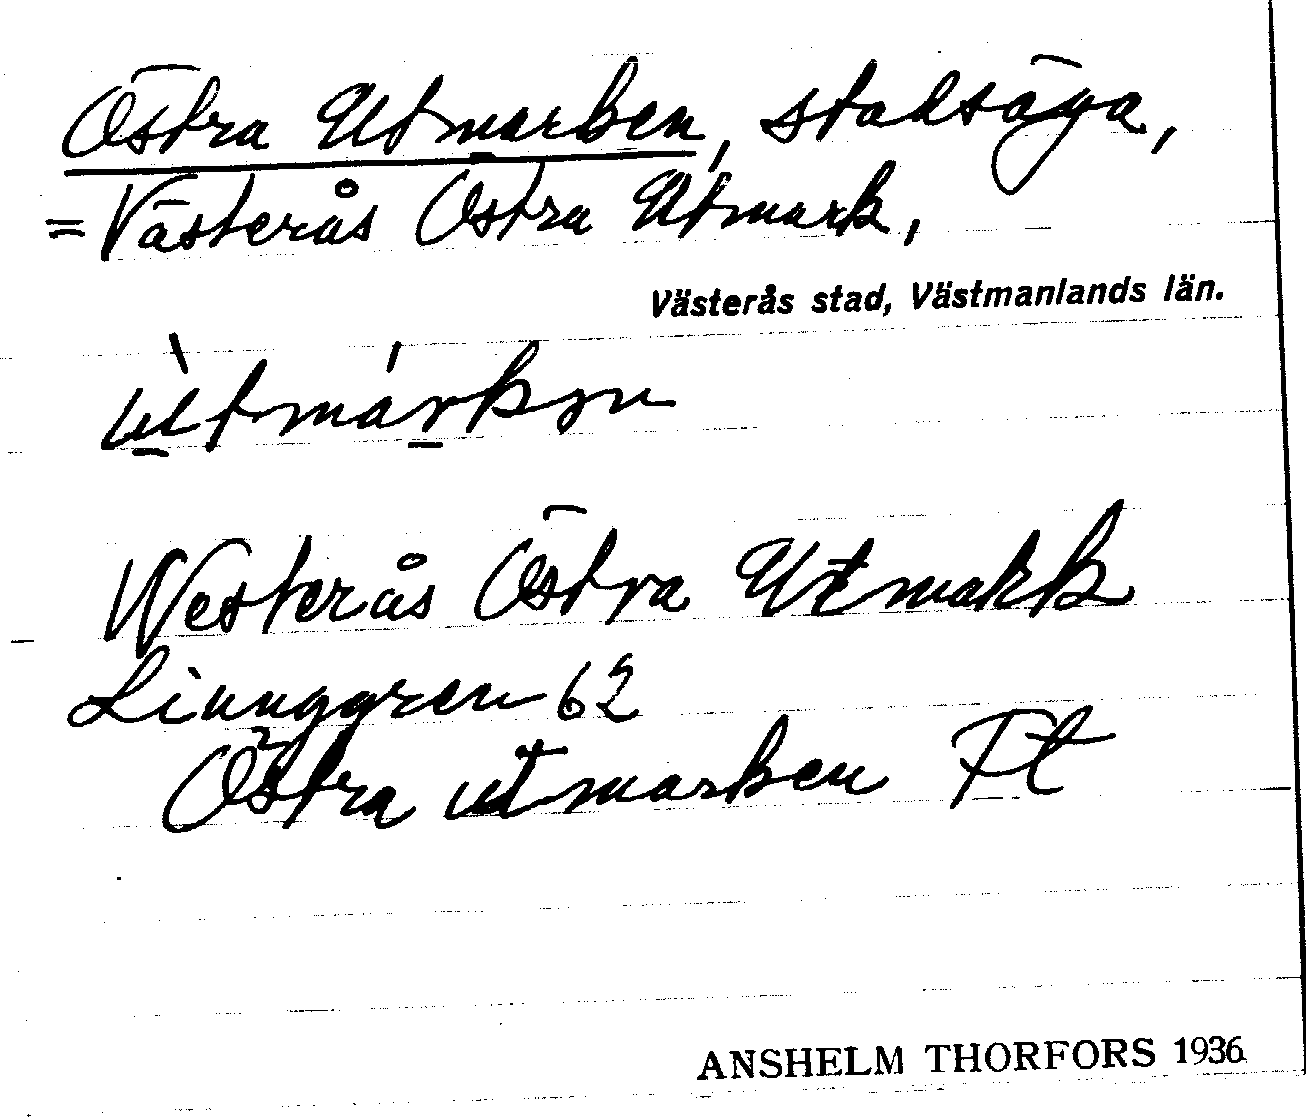 Östra Utmarken, stadsäga,
= Västerås Östra Utmark,
Västerås stad, Västmanlands län.
ùtmárkən
Westerås Östra Utmark
Ljunggren 62
Östra utmarken Ft
ANSHELM THORFORS 1936